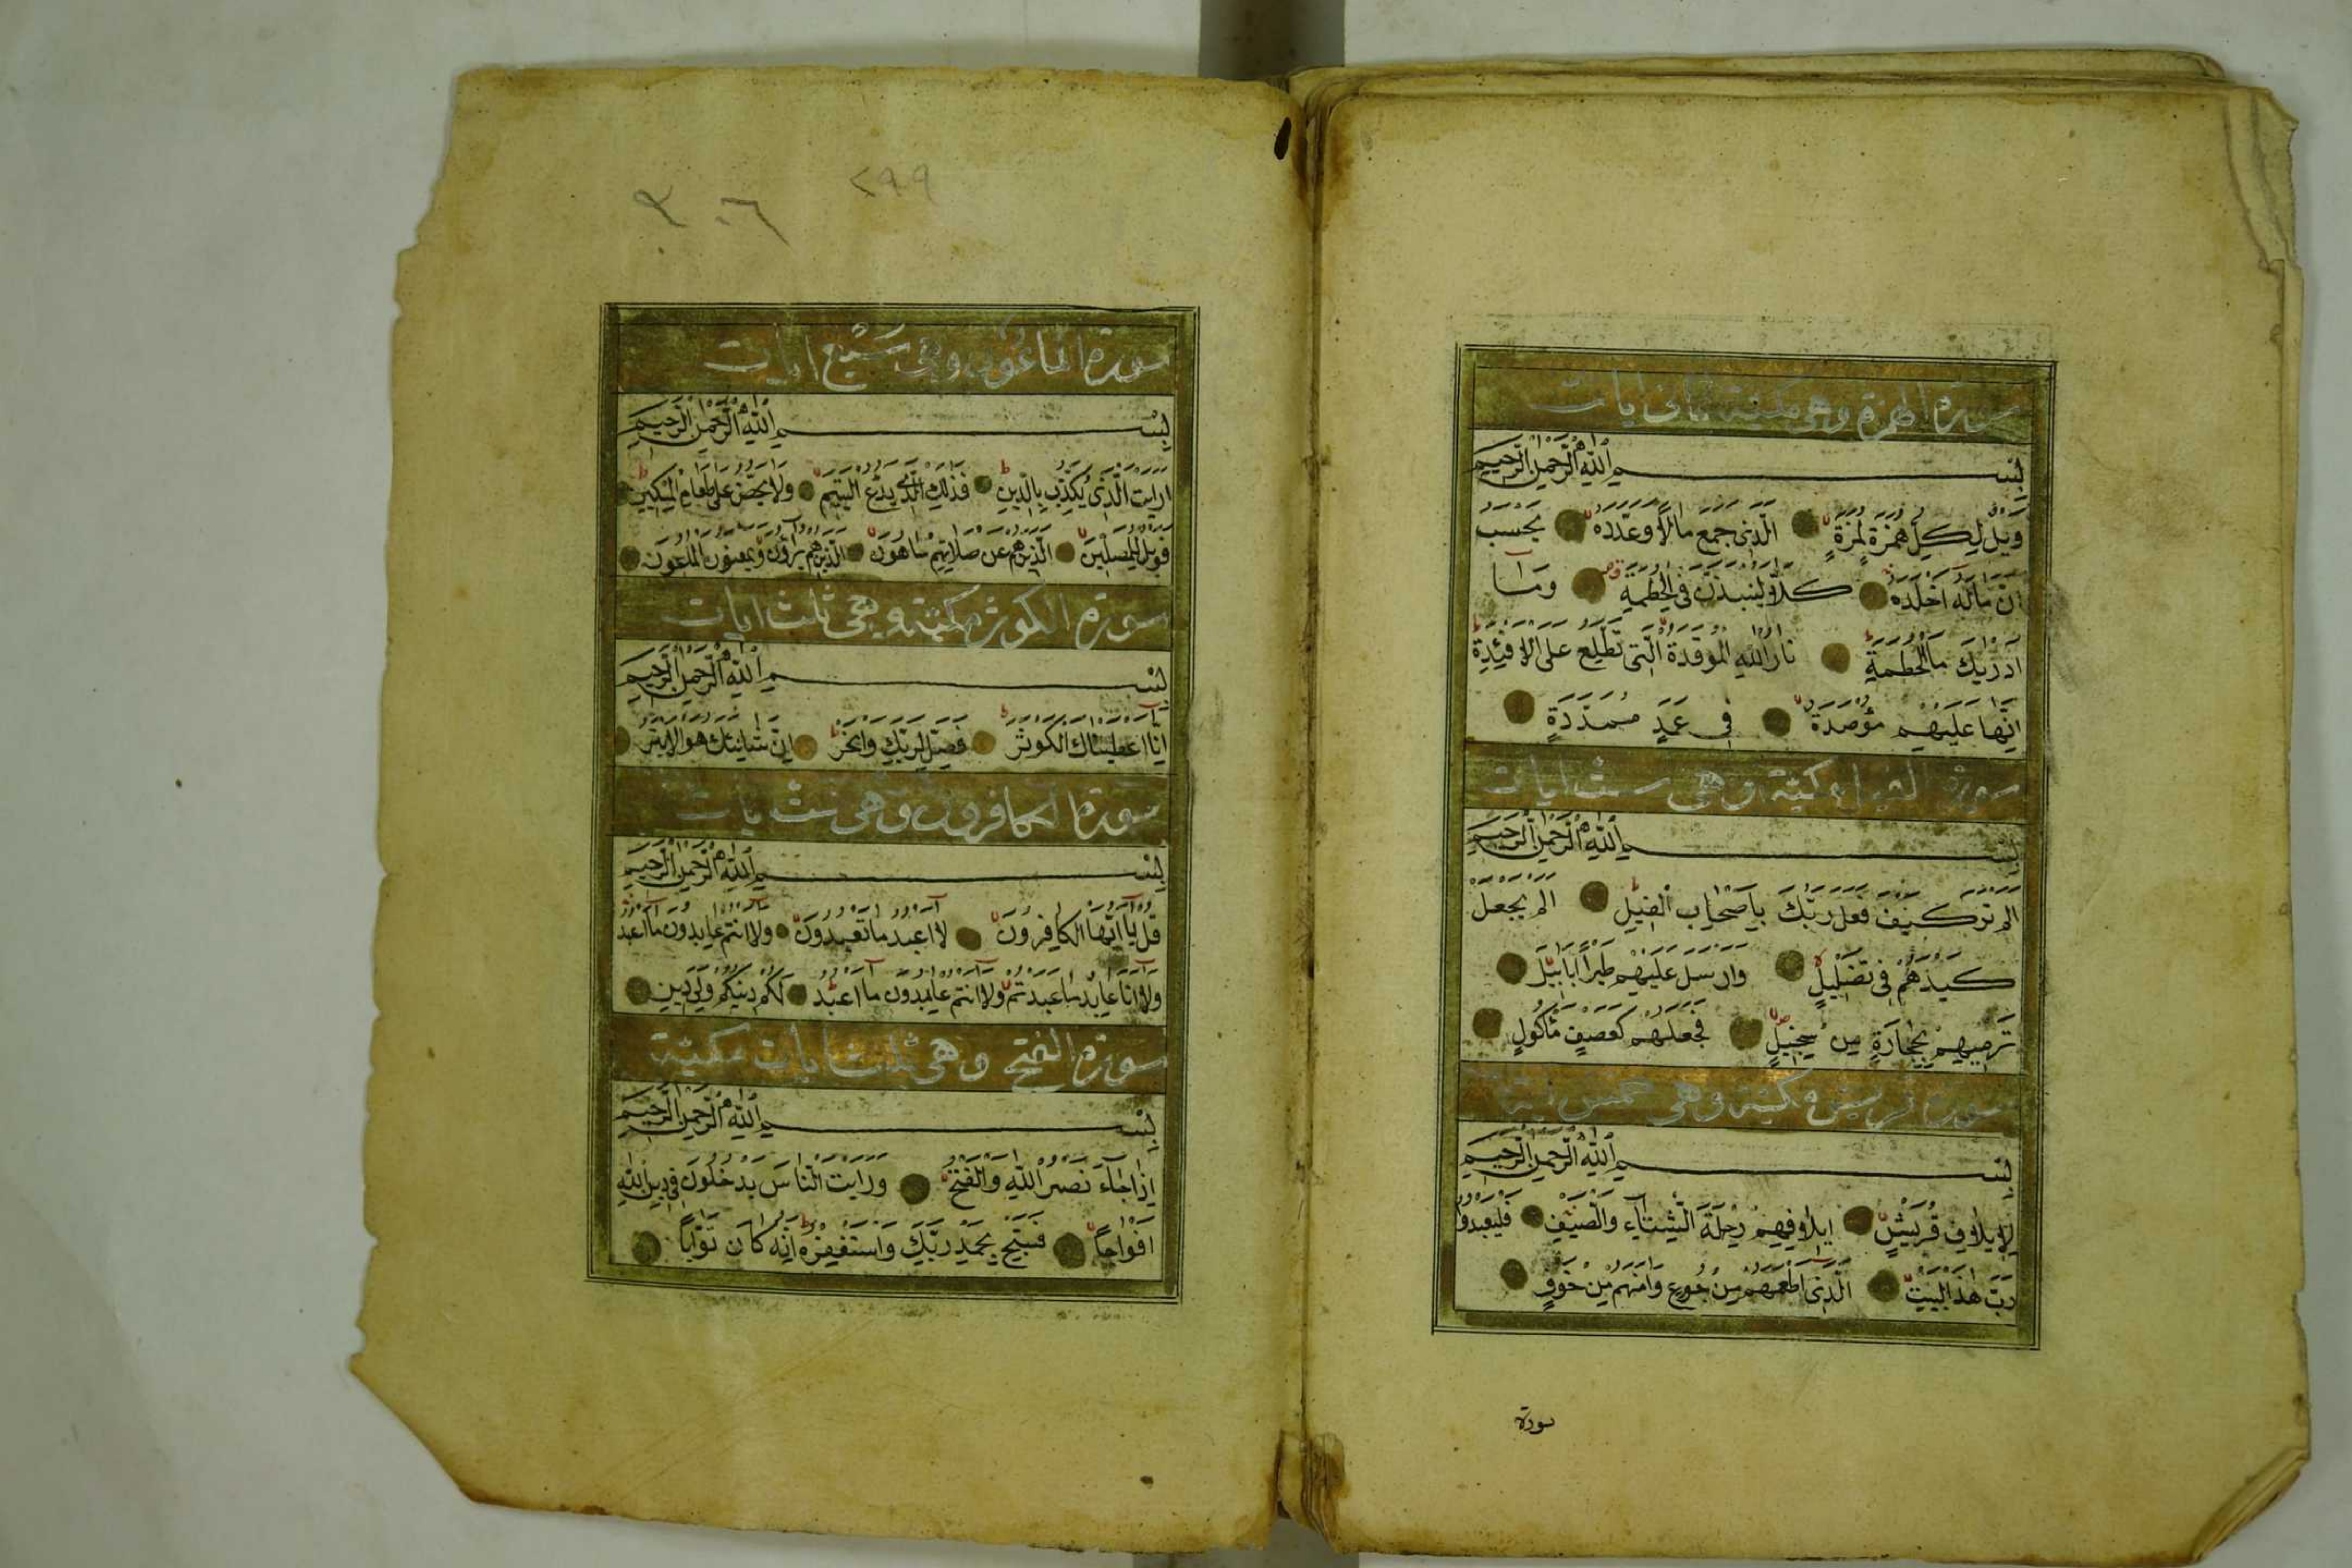 سورة الهمزة وهى مكية ثمانى ايات
بِسْمِ اللّٰهِ الرَّحْمٰنِ الرَّحِيمِ
وَيْلٌ لِكُلِّ هُمَزَةٍ لُمَزَةٍ الَّذِى جَمَعَ مَالًا وَعَدَّدَهُ يَحْسَبُ
اَنَّ مَالَهُ اَخْلَدَهُ كَلَّا لَيُنْبَذَنَّ فِى الْحُطَمَةِ وَمَا
اَدْرٰيكَ مَا الْحُطَمَةُ نَارُ اللّٰهِ الْمُوقَدَةُ الَّتِى تَطَّلِعُ عَلَى الْاَفْئِدَةِ
اِنَّهَا عَلَيْهِمْ مُؤْصَدَةٌ فِى عَمَدٍ مُمَدَّدَةٍ
سورة الفيل مكية وهى ست ايات
بِسْمِ اللّٰهِ الرَّحْمٰنِ الرَّحِيمِ
اَلَمْ تَرَ كَيْفَ فَعَلَ رَبُّكَ بِاَصْحَابِ الْفِيلِ اَلَمْ يَجْعَلْ
كَيْدَهُمْ فِى تَضْلِيلٍ وَاَرْسَلَ عَلَيْهِمْ طَيْرًا اَبَابِيلَ
تَرْمِيهِمْ بِحِجَارَةٍ مِنْ سِجِّيلٍ فَجَعَلَهُمْ كَعَصْفٍ مَأْكُولٍ
سورة قريش مكية وهى خمس
بِسْمِ اللّٰهِ الرَّحْمٰنِ الرَّحِيمِ
لِاِيلَافِ قُرَيْشٍ اِيلَافِهِمْ رِحْلَةَ الشِّتَاءِ وَالصَّيْفِ فَلْيَعْبُدُوا
رَبَّ هٰذَا الْبَيْتِ الَّذِى اَطْعَمَهُمْ مِنْ جُوعٍ وَاٰمَنَهُمْ مِنْ خَوْفٍ
سورة
٢٩٩
٣٠٦
سورة الماعون وهى سبع ايات
بِسْمِ اللّٰهِ الرَّحْمٰنِ الرَّحِيمِ
اَرَاَيْتَ الَّذِى يُكَذِّبُ بِالدِّينِ فَذٰلِكَ الَّذِى يَدُعُّ الْيَتِيمَ وَلَا يَحُضُّ عَلٰى طَعَامِ الْمِسْكِينِ
فَوَيْلٌ لِلْمُصَلِّينَ الَّذِينَ هُمْ عَنْ صَلَاتِهِمْ سَاهُونَ الَّذِينَ هُمْ يُرَاؤُنَ وَيَمْنَعُونَ الْمَاعُونَ
سورة الكوثر مكية وهى ثلث ايات
بِسْمِ اللّٰهِ الرَّحْمٰنِ الرَّحِيمِ
اِنَّا اَعْطَيْنَاكَ الْكَوْثَرَ فَصَلِّ لِرَبِّكَ وَانْحَرْ اِنَّ شَانِئَكَ هُوَ الْاَبْتَرُ
سورة الكافرون وهى ست ايات
بِسْمِ اللّٰهِ الرَّحْمٰنِ الرَّحِيمِ
قُلْ يَا اَيُّهَا الْكَافِرُونَ لَا اَعْبُدُ مَا تَعْبُدُونَ وَلَا اَنْتُمْ عَابِدُونَ مَا اَعْبُدُ
وَلَا اَنَا عَابِدٌ مَا عَبَدْتُمْ وَلَا اَنْتُمْ عَابِدُونَ مَا اَعْبُدُ لَكُمْ دِينُكُمْ وَلِىَ دِينِ
سورة الفتح وهى ثلث ايات مكية
بِسْمِ اللّٰهِ الرَّحْمٰنِ الرَّحِيمِ
اِذَا جَاءَ نَصْرُ اللّٰهِ وَالْفَتْحُ وَرَاَيْتَ النَّاسَ يَدْخُلُونَ فِى دِينِ اللّٰهِ
اَفْوَاجًا فَسَبِّحْ بِحَمْدِ رَبِّكَ وَاسْتَغْفِرْهُ اِنَّهُ كَانَ تَوَّابًا